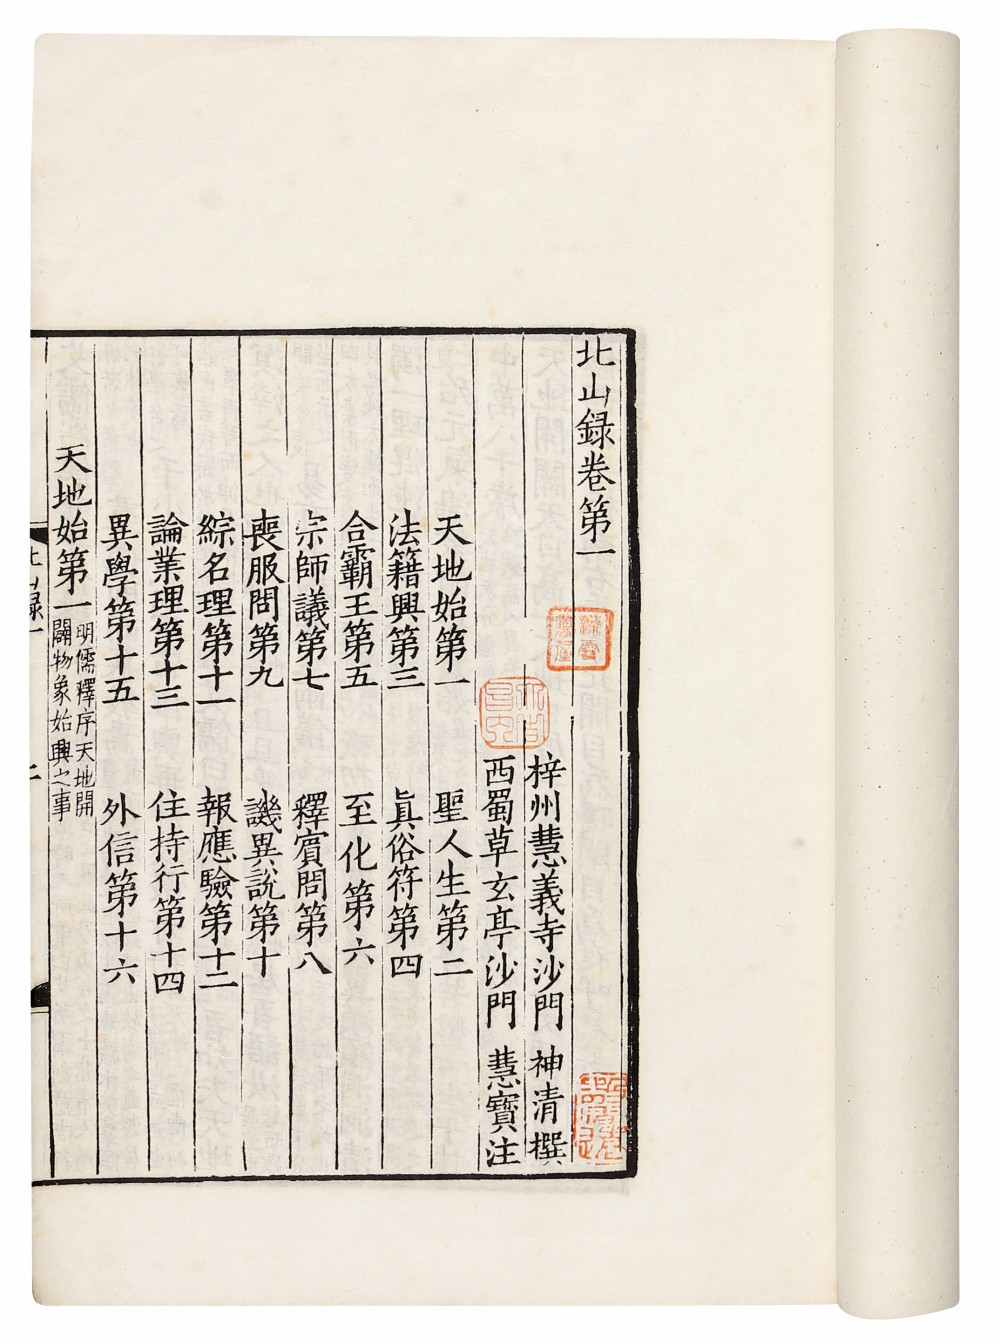 北山録卷第一
梓州慧義寺沙門 神清撰
西蜀草玄亭沙門 慧寶注
天地始第一 聖人生第二
法籍興第三 眞俗符第四
合霸王第五 至化第六
宗師議第七 釋賓問第八
喪服問第九 譏異說第十
綜名理第十一 報應驗第十二
論業理第十三 住持行第十四
異學第十五 外信第十六
天地始第一 明儒釋序天地開
闢物象始興之事
北山録一